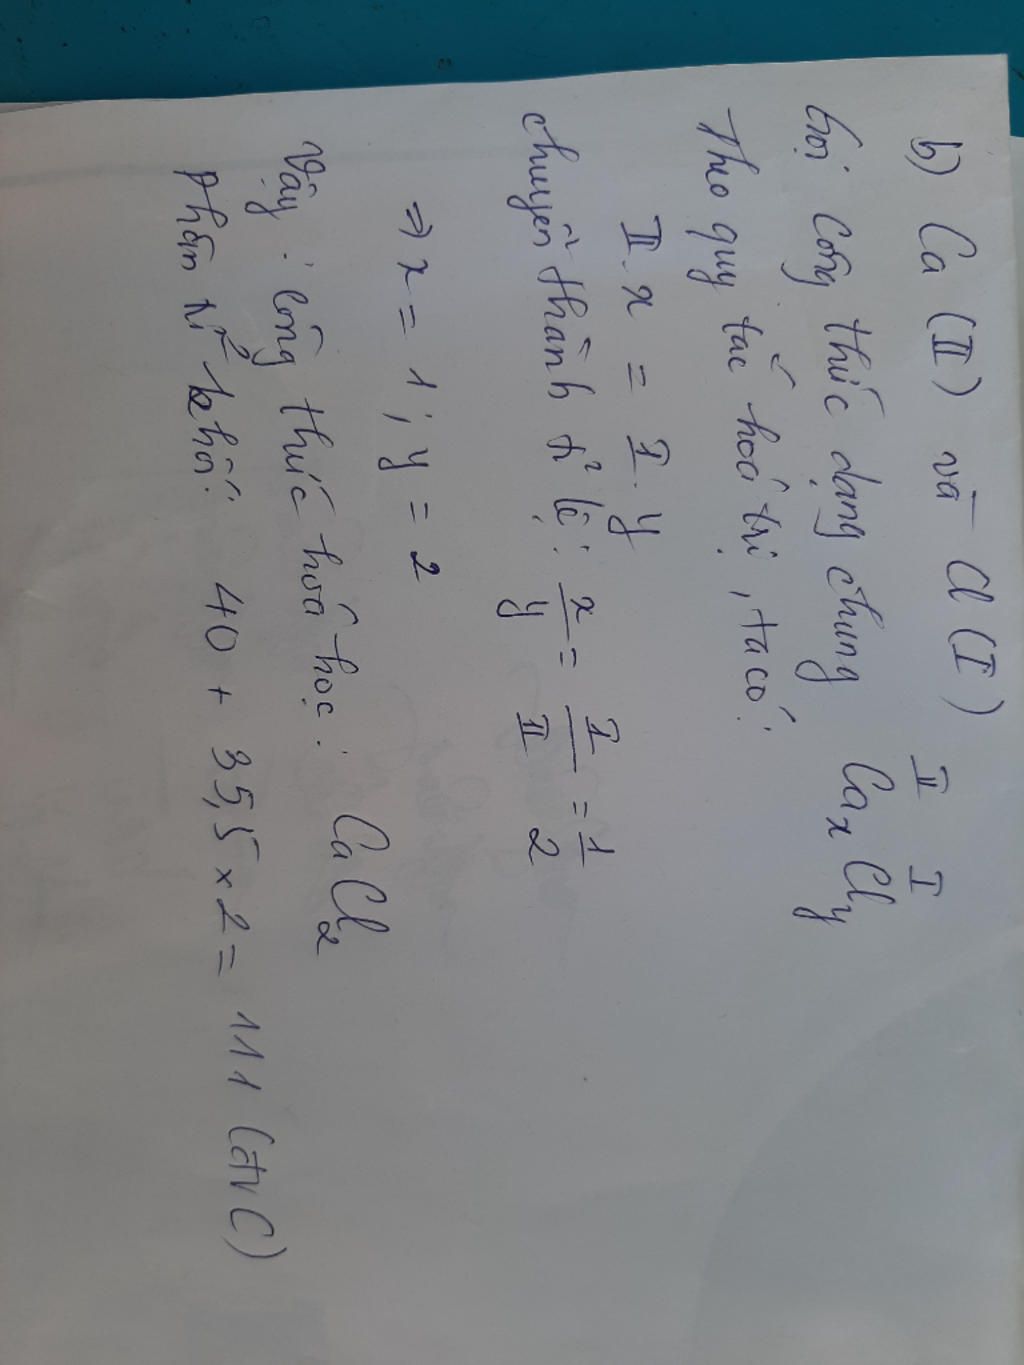 b) Ca (II) và Cl (I)
Gọi công thức dạng chung
II I
CaxCly
Theo quy tắc hoá trị, ta có:
II.x = I.y
chuyển thành tỉ lệ: x/y = I/II = 1/2
⇒ x = 1; y = 2
Vậy: công thức hoá học: CaCl2
Phân tử khối: 40 + 35,5 x 2 = 111 (đvC)